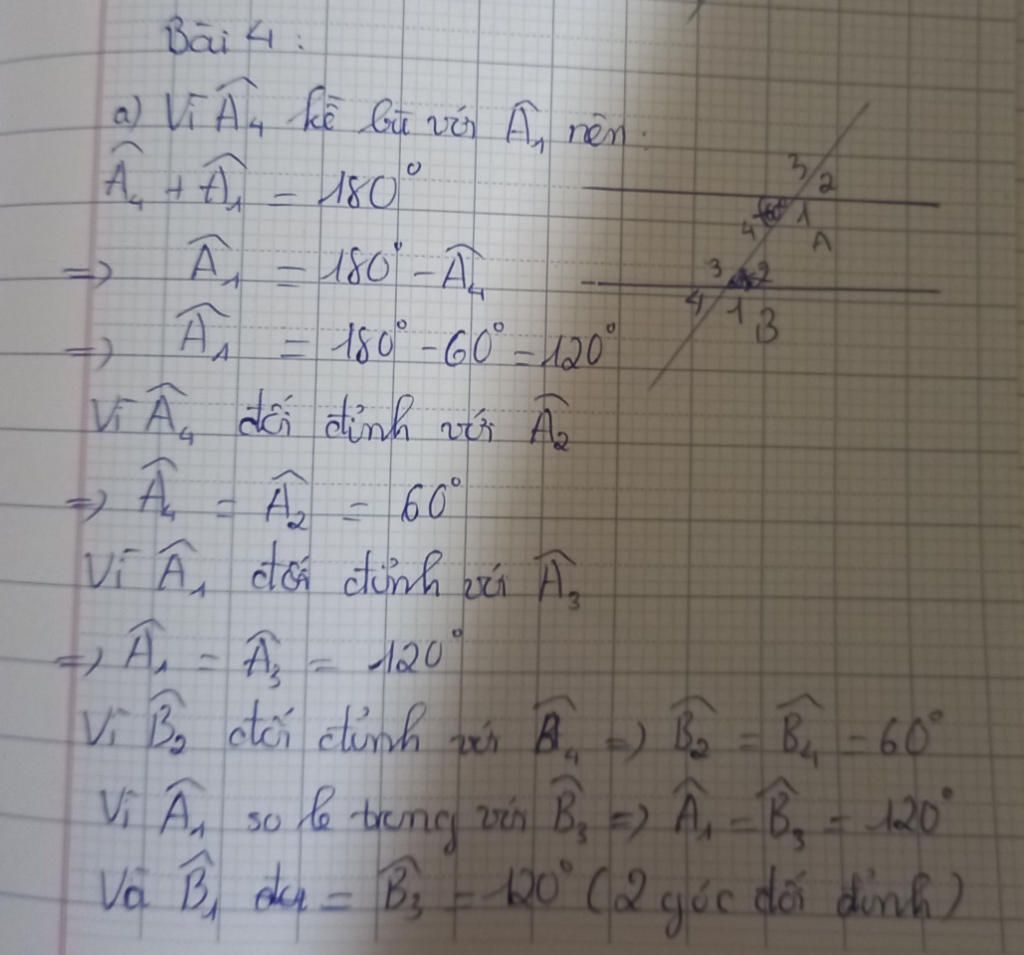 Bài 4 :
a) Vì Â₄ kề bù với Â₁ nên :
Â₄ + Â₁ = 180°
=> Â₁ = 180° - Â₄
=> Â₁ = 180° - 60° = 120°
Vì Â₄ đối đỉnh với Â₂
=> Â₄ = Â₂ = 60°
Vì Â₁ đối đỉnh với Â₃
=> Â₁ = Â₃ = 120°
Vì B̂₂ đối đỉnh với B̂₄ => B̂₂ = B̂₄ = 60°
Vì Â₁ so le trong với B̂₃ => Â₁ = B̂₃ = 120°
Và B̂₁ = B̂₃ = 120° (2 góc đối đỉnh)
3 2
60° 1
4 A
3 2
4 1 B